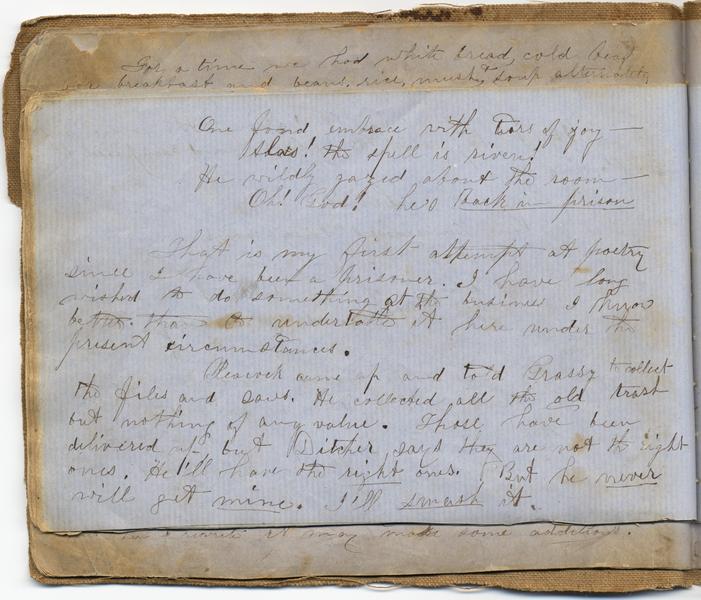 For a time we had white bread, cold beef
for breakfast and beans, rice, mush & soup alternately
One fond embrace with tears of joy —
Alas! the spell is riven!
He wildly gazed about the room —
Oh! God! he's back in prison
That is my first attempt at poetry
since I have been a prisoner. I have long
wished to do something at the business I know
better than to undertake it here under the
present circumstances.
Peacock came up and told Grassy to collect
the files and saws. He collected all the old trash
but nothing of any value. Those have been
delivered up but Ditcher says they are not the right
ones. He'll have the right ones. But he never
will get mine. I'll smash it.
rewrite it may make some additions.